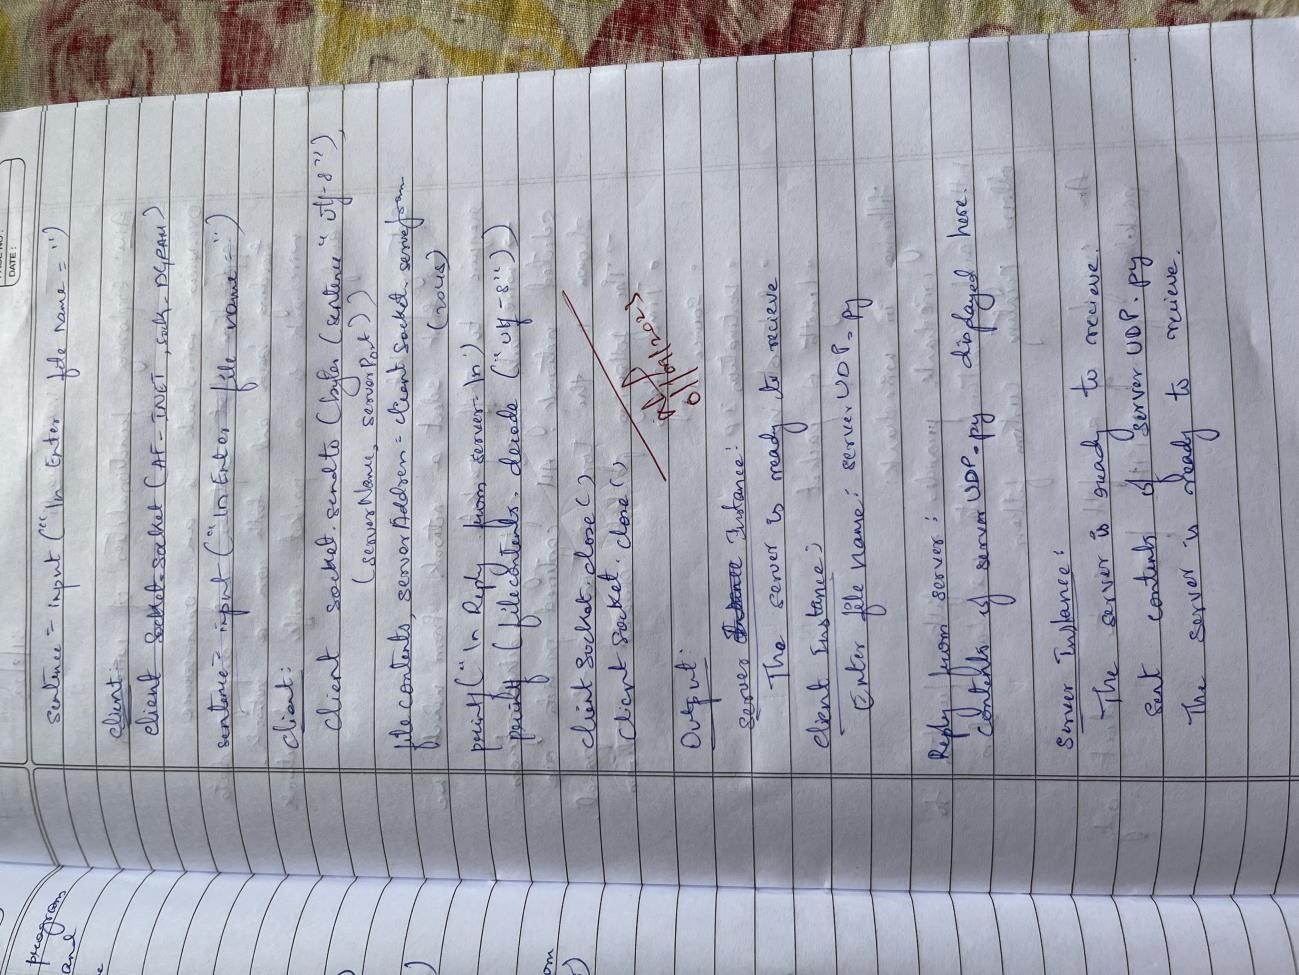 DATE :
sentence = input ("\n Enter file name = ")
client:
client socket = socket (AF-INET, sock-DGRAM)
sentence = input ("\n Enter file name = ")
client:
client socket. sendto (bytes (sentence "utf-8"),
(serverName, serverPort))
file contents, server Address = client socket. servefrom
(2048)
print ("\n Reply from server-\n)
print (filecontents. decode ("utf-8"))
client socket. close ( )
client socket. close ( )
Output:
Server Instance:
The server is ready to recieve
Client Instance:
Enter file name: serverUDP.py
Reply from server:
contents of serverUDP.py displayed here.
Server Instance:
The server is ready to recieve.
Sent contents of serverUDP.py
The server is ready to recieve.
program
and